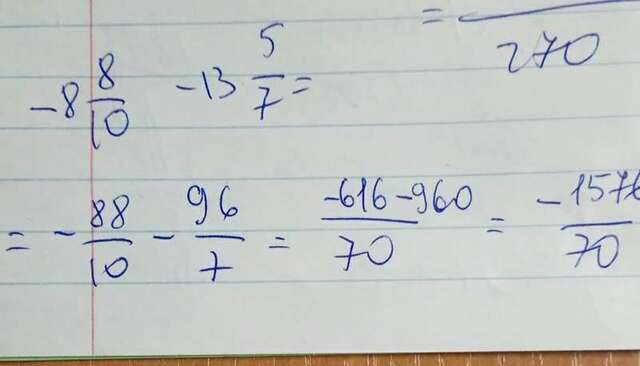 = 270
-8 8/10 -13 5/7 =
= - 88/10 - 96/7 = -616-960/70 = -1576/70